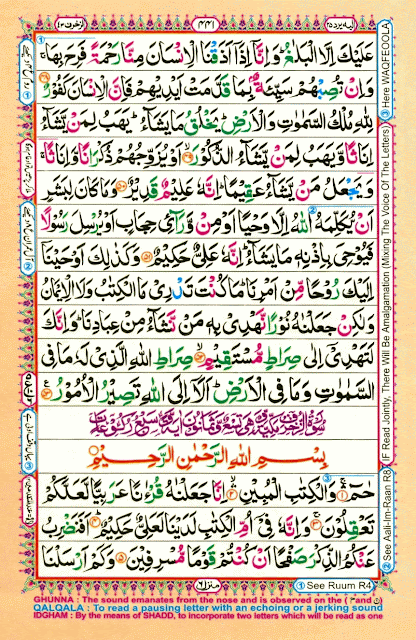 اليه يرد ٢٥
٤٤١
الزخرف ٤٣
عَلَيْكَ اِلَّا الْبَلٰغُ ؕ وَاِنَّاۤ اِذَاۤ اَذَقْنَا الْاِنْسَانَ مِنَّا رَحْمَةً فَرِحَ بِهَا ۚ
وَاِنْ تُصِبْهُمْ سَيِّئَةٌۢ بِمَا قَدَّمَتْ اَيْدِيْهِمْ فَاِنَّ الْاِنْسَانَ كَفُوْرٌ ﴿۴۸﴾
لِلّٰهِ مُلْكُ السَّمٰوٰتِ وَالْاَرْضِ ؕ يَخْلُقُ مَا يَشَآءُ ؕ يَهَبُ لِمَنْ يَّشَآءُ
اِنَاثًا وَّيَهَبُ لِمَنْ يَّشَآءُ الذُّكُوْرَ ﴿۴۹﴾ اَوْ يُزَوِّجُهُمْ ذُكْرَانًا وَّاِنَاثًا ۚ
وَيَجْعَلُ مَنْ يَّشَآءُ عَقِيْمًا ؕ اِنَّهٗ عَلِيْمٌ قَدِيْرٌ ﴿۵۰﴾ وَمَا كَانَ لِبَشَرٍ
اَنْ يُّكَلِّمَهُ اللّٰهُ اِلَّا وَحْيًا اَوْ مِنْ وَّرَآئِ حِجَابٍ اَوْ يُرْسِلَ رَسُوْلًا
فَيُوْحِيَ بِاِذْنِهٖ مَا يَشَآءُ ؕ اِنَّهٗ عَلِيٌّ حَكِيْمٌ ﴿۵۱﴾ وَكَذٰلِكَ اَوْحَيْنَاۤ
اِلَيْكَ رُوْحًا مِّنْ اَمْرِنَا ؕ مَا كُنْتَ تَدْرِيْ مَا الْكِتٰبُ وَلَا الْاِيْمَانُ
وَلٰكِنْ جَعَلْنٰهُ نُوْرًا نَّهْدِيْ بِهٖ مَنْ نَّشَآءُ مِنْ عِبَادِنَا ؕ وَاِنَّكَ
لَتَهْدِيْۤ اِلٰى صِرَاطٍ مُّسْتَقِيْمٍ ﴿۵۲﴾ صِرَاطِ اللّٰهِ الَّذِيْ لَهٗ مَا فِى
السَّمٰوٰتِ وَمَا فِى الْاَرْضِ ؕ اَلَاۤ اِلَى اللّٰهِ تَصِيْرُ الْاُمُوْرُ ﴿۵۳﴾
سورة الزخرف مكية وهى تسع وثمانون اية وسبع ركوعات
بِسْمِ اللّٰهِ الرَّحْمٰنِ الرَّحِيْمِ
حٰمٓ ﴿۱﴾ وَالْكِتٰبِ الْمُبِيْنِ ﴿۲﴾ اِنَّا جَعَلْنٰهُ قُرْءٰنًا عَرَبِيًّا لَّعَلَّكُمْ
تَعْقِلُوْنَ ﴿۳﴾ وَاِنَّهٗ فِيْۤ اُمِّ الْكِتٰبِ لَدَيْنَا لَعَلِيٌّ حَكِيْمٌ ﴿۴﴾ اَفَنَضْرِبُ
عَنْكُمُ الذِّكْرَ صَفْحًا اَنْ كُنْتُمْ قَوْمًا مُّسْرِفِيْنَ ﴿۵﴾ وَكَمْ اَرْسَلْنَا
منزل ٦
① See Ruum R4
② See Aali-Im-Raan R8 (IF Read Jointly, There Will Be Amalgamation (Mixing The Voice Of The Letters) ③ Here WAQFEOOLA
GHUNNA : The sound emanates from the nose and is observed on the (ن and م)
QALQALA : To read a pausing letter with an echoing or a jerking sound
IDGHAM : By the means of SHADD, to incorporate two letters which will be read as one